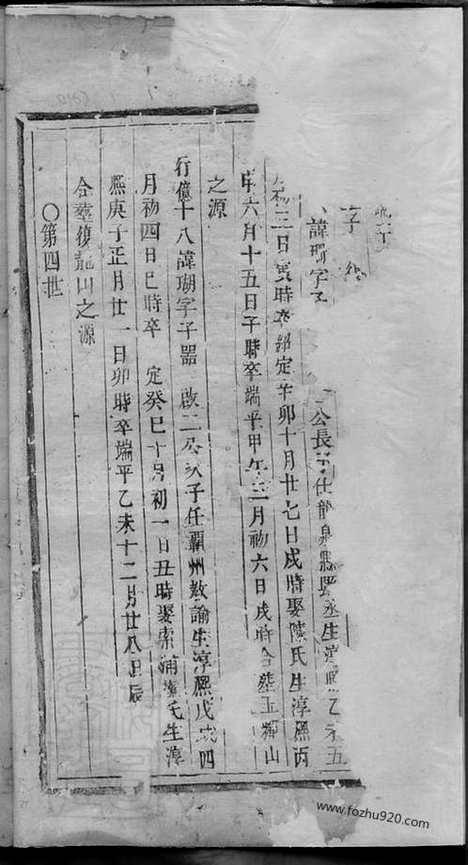 諱瑚字子
公長子仕龍泉縣丞生淳熙乙未五
初三日寅時卒紹定辛卯十月廿七日戌時娶陳氏生淳熙丙
申六月十五日子時卒端平甲午三月初六日戌時合葬玉狮山
之源
行億十八諱瑚字子器 啟二公次子任霸州教諭生淳熙戊戌四
月初四日巳時卒 定癸巳十月初一日丑時娶索浦 氏生淳
熙庚子正月廿 日卯時卒端平乙未十二月廿八日辰
合葬後龍山之源
○第四世
www.fozhu920.com